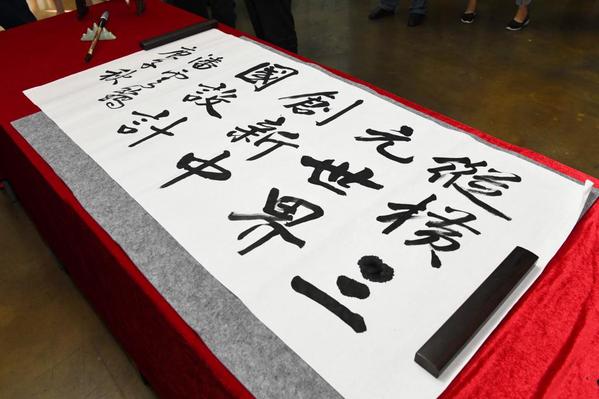 縱橫三
元世界
創新中
國設計
潘云鶴
庚子秋